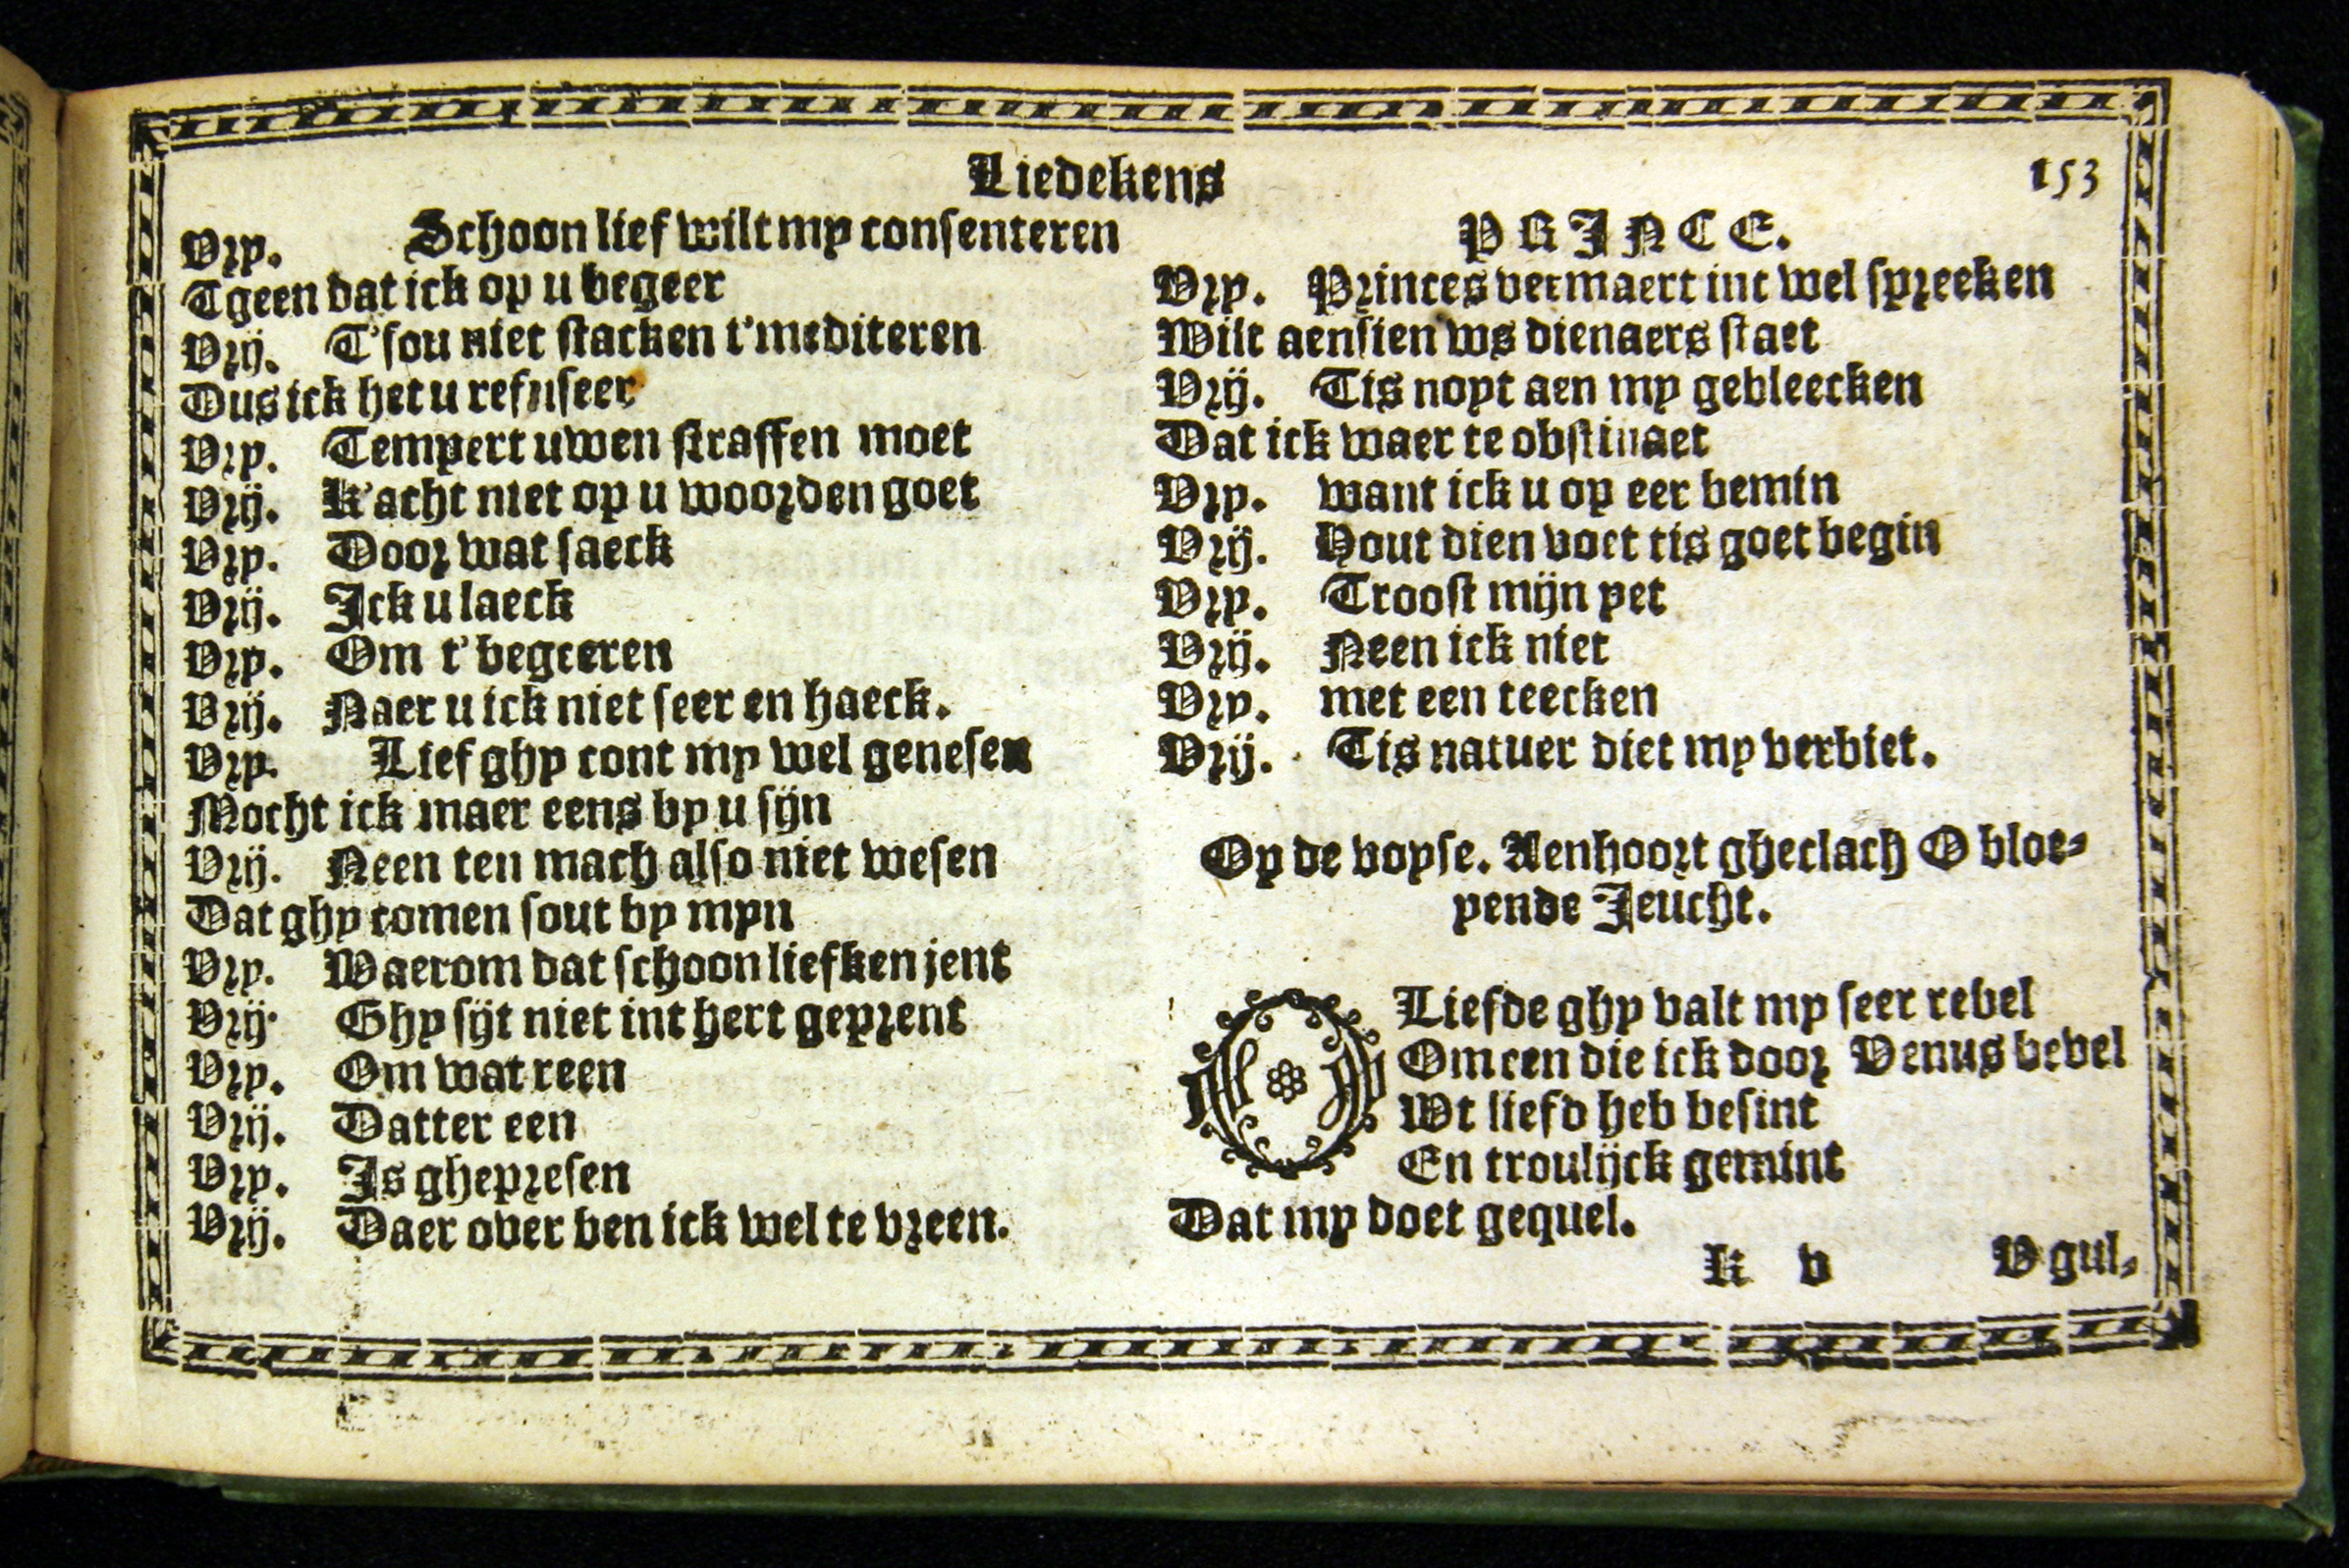 Liedekens
153
Vry. Schoon lief wilt my consenteren
Tgeen dat ick op u begeer
Vrij. T'sou niet stacken t'mediteren
Dus ick het u refuseer
Vry. Tempert uwen straffen moet
Vrij. K'acht niet op u woorden goet
Vry. Door wat saeck
Vrij. Ick u laeck
Vry. Om t'begeeren
Vrij. Naer u ick niet seer en haeck.
Vry. Lief ghy cont my wel genesen
Mocht ick maer eens by u sijn
Vrij. Neen ten mach also niet wesen
Dat ghy comen sout by myn
Vry. Waerom dat schoon liefken jent
Vrij. Ghy sijt niet int hert geprent
Vry. Om wat reen
Vrij. Datter een
Vry. Is ghepresen
Vrij. Daer over ben ick wel te vreen.
PRINCE.
Vry. Princes vermaert int wel spreeken
Wilt aensien ws dienaers staet
Vrij. Tis noyt aen my gebleecken
Dat ick waer te obstinaet
Vry. want ick u op eer bemin
Vrij. Hout dien voet tis goet begin
Vry. Troost mijn yet
Vrij. Neen ick niet
Vry. met een teecken
Vrij. Tis natuer diet my verbiet.
Op de voyse. Aenhoort gheclach O bloe-
yende Jeucht.
O Liefde ghy valt my seer rebel
Om een die ick door Venus bevel
Wt liefd heb besint
En troulijck gemint
Dat my doet gequel.
K v V gul-